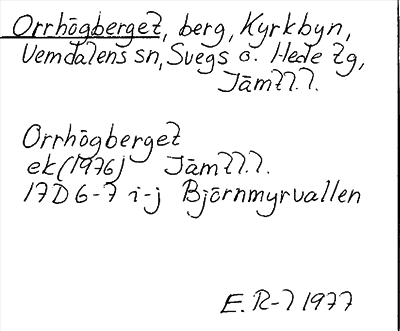 Orrhögberget, berg, Kyrkbyn,
Vemdalens sn, Svegs o. Hede tg,
Jämtl.l.
Orrhögberget
ek (1976) Jämtl.l.
17D 6-7 i-j Björnmyrvallen
E. R-l 1977